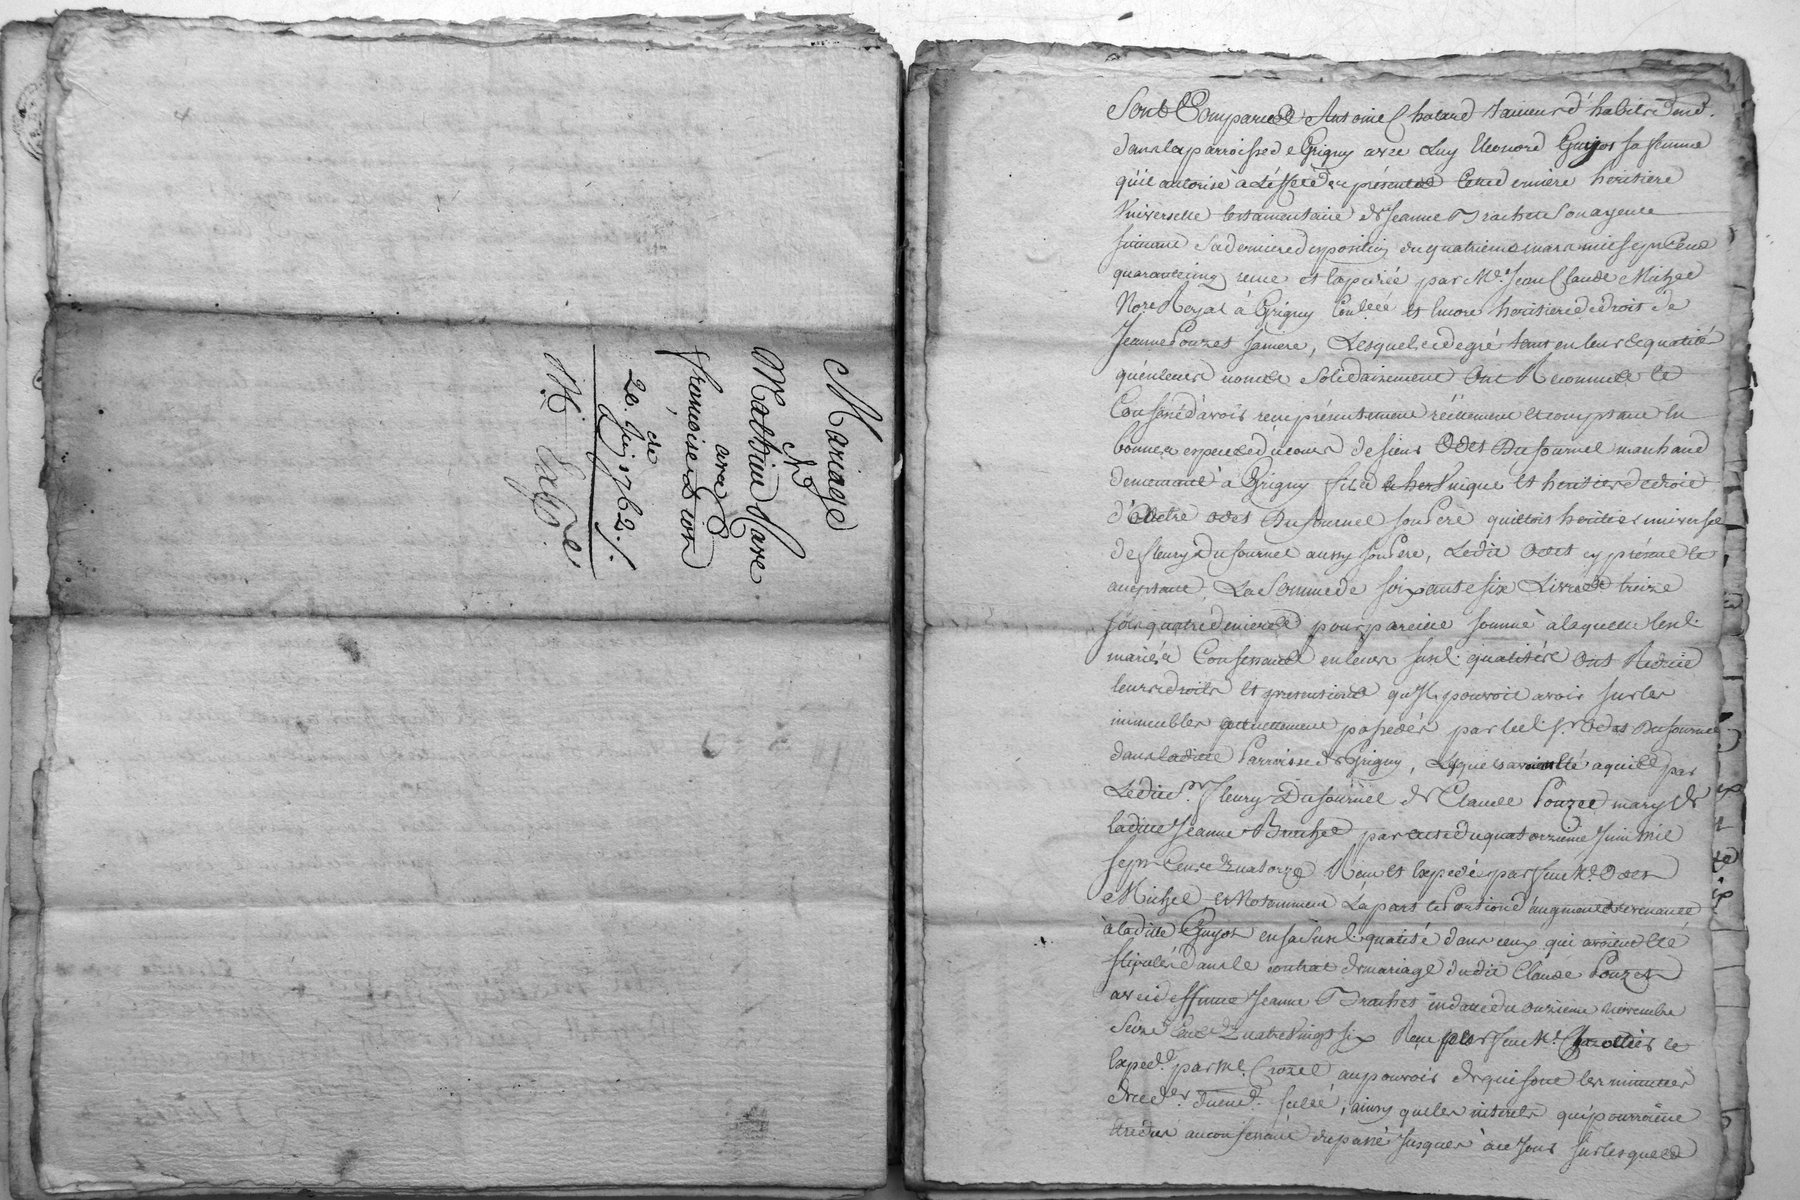 Mariage
de
Mathieu Mare
avec
françoise Dion
du
20. Juin 1762 ./.
M. Expé
Sont Comparus Antoine Chatard tailleur d'habits demt.
dans la parroisse de Grigny avec Luy Eleonore Guyot sa femme
qu'il autorise à l'effet des présentes cette dernière héritière
Universelle testamentaire de Jeanne Brachet son ayeule
suivant sa derniere disposition du quatrieme mars mil sept Cent
quarantecinq reçue et expediée par Me. Jean Claude Michel
Nore. Royal à Grigny Conlée et encore heritiere de droit de
Jeanne Pouzet sa mere, Lesquels de gré tant en leurs qualités
qu'en leurs noms Solidairement Ont Reconnu et
Confessé d'avoir reçu présentement réellement et comptant en
bonnes especes du cours de sieur Odet Dufournel marchand
demeurant à Grigny fils unique et heritier de droit
d'autre Odet Dufournel son Pere qui étoit heritier universel
de fleury Dufournel aussy son Pere, Ledit Odet cy présent et
acceptant, La Somme de soixante six Livres treize
sols quatre deniers pour pareille somme à laquelle lesd.
mariés Confessants en leurs susd. qualités Ont Reduit
leurs droits et pretentions qu'ils pouvoit avoir sur les
immeubles actuellement possedés par led. sr. Odet Dufournel
dans ladite Parroisse de Grigny, Lesquels avoient été aquis par
Ledit Sr. fleury Dufournel de Claude Pouzet mary de
ladite Jeanne Brachet par acte du quatorzieme Juin mil
sept Cents quatorze Reçu et expedié par feu Me. Odet
Michel et Notamment La part et Portion d'augment revenant
à ladite Guyot en sa susd. qualité dans ceux qui avoient été
stipulés dans le contrat de mariage dudit Claude Pouzet
avec deffunte Jeanne Brachet en datte du onzieme novembre
Seize Cent Quatre Vingt six Reçu par feu Me. et
Exped. par Me. Crozet au pouvoir de qui sont les minutes
dud. scellé, ainsy que les interets qui pourroient
être dus aux confessants du passé Jusques à ce Jour sur lesquels